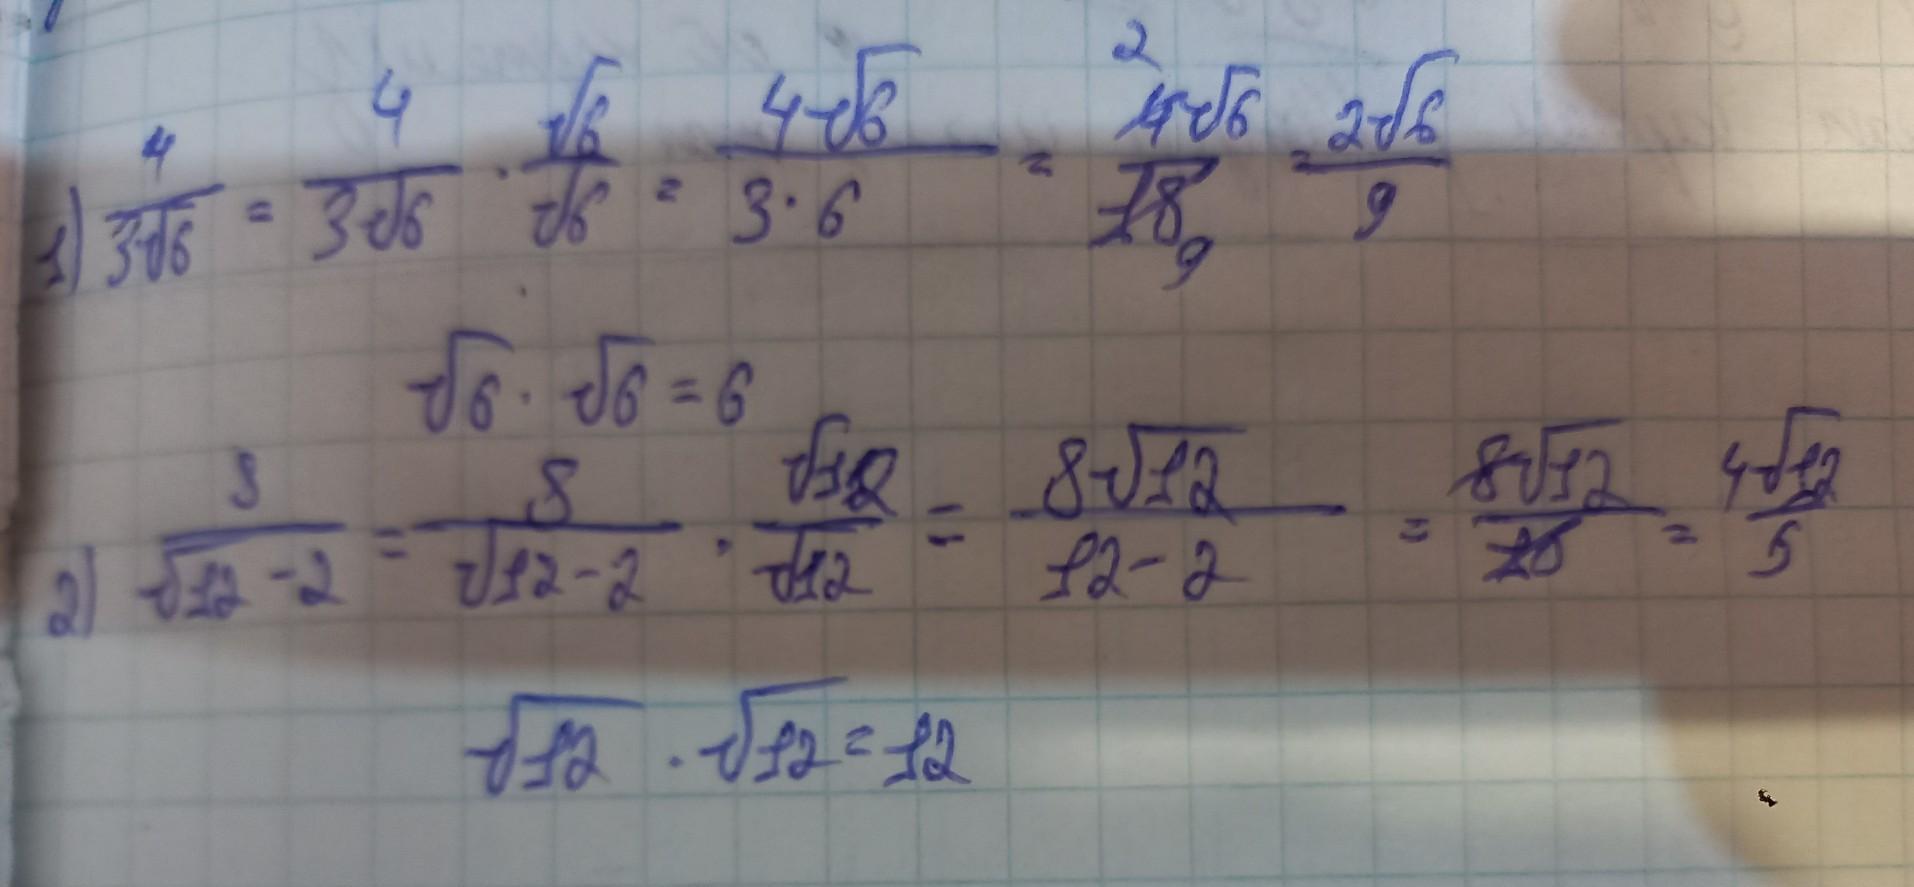 1) 4/3√6 = 4/3√6 · √6/√6 = 4√6/3·6 = 4√6/18 = 2√6/9
2
9
√6 · √6 = 6
2) 8/√12-2 = 8/√12-2 · √12/√12 = 8√12/12-2 = 8√12/10 = 4√12/5
√12 · √12 = 12